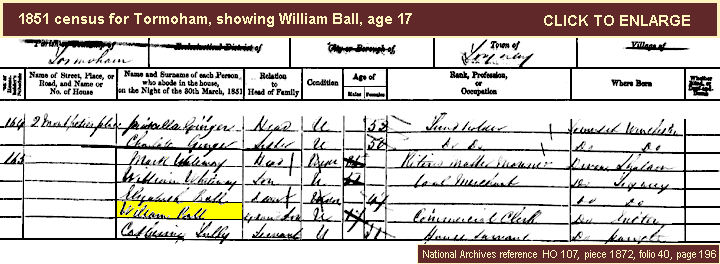 1851 census for Tormoham, showing William Ball, age 17
CLICK TO ENLARGE
Parish or Township of
Ecclesiastical District of
City or Borough of
Town of
Village of
Tormoham
Torquay
Name of Street, Place, or Road, and Name or No. of House
Name and Surname of each Person, who abode in the house, on the Night of the 30th March, 1851
Relation to Head of Family
Condition
Age of
Males
Females
Rank, Profession, or Occupation
Where Born
Whether Blind, or Deaf and Dumb
164 2 Montpelier place Priscilla Ginger Head U 53 Fundholder Somerset
Charlotte Ginger Sister U 50 Do Do Do Do
165 Mark Whiteway Head Retired Master Mariner Devon
William Whiteway Son U Coal Merchant Do Torquay
Elizabeth Ball Do Do
William Ball U 17 Commercial Clerk Do
Catherine Tully Servant U House Servant Do
National Archives reference HO 107, piece 1872, folio 40, page 196